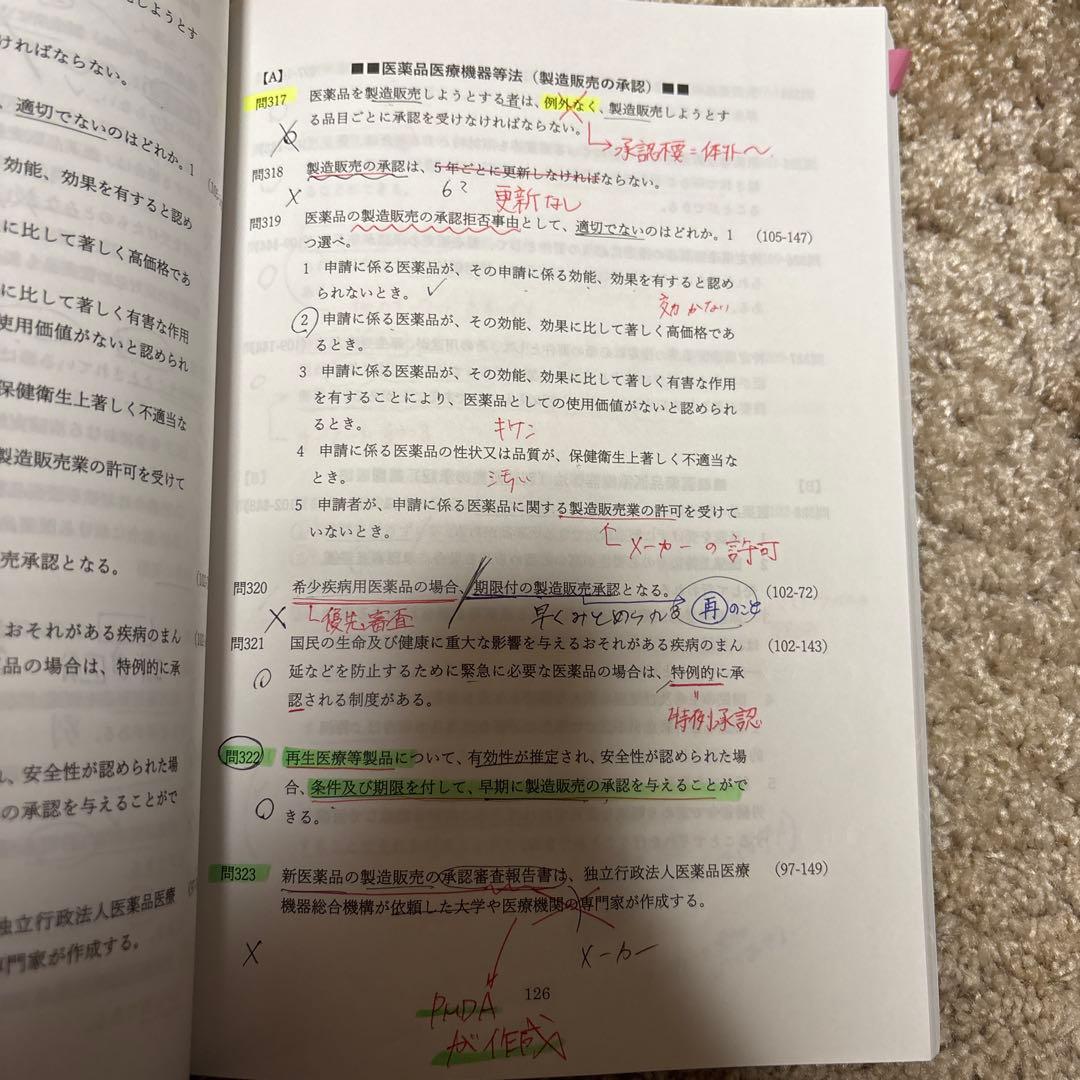 しようとす
ければならない。
、適切でないのはどれか。1
効能、効果を有すると認め
に比して著しく高価格であ
に比して著しく有害な作用
使用価値がないと認められ
保健衛生上著しく不適当な
製造販売業の許可を受けて
売承認となる。
おそれがある疾病のまん
品の場合は、特例的に承
、安全性が認められた場
の承認を与えることがで
独立行政法人医薬品医療
専門家が作成する。
【A】
■■医薬品医療機器等法（製造販売の承認）■■
問317 医薬品を製造販売しようとする者は、例外なく、製造販売しようとす
る品目ごとに承認を受けなければならない。
→承認不要=体外〜
問318 製造販売の承認は、5年ごとに更新しなければならない。
×
6?
更新なし
問319 医薬品の製造販売の承認拒否事由として、適切でないのはどれか。1 (105-147)
つ選べ。
1 申請に係る医薬品が、その申請に係る効能、効果を有すると認め
られないとき。
効かない
2 申請に係る医薬品が、その効能、効果に比して著しく高価格であ
るとき。
3 申請に係る医薬品が、その効能、効果に比して著しく有害な作用
を有することにより、医薬品としての使用価値がないと認められ
るとき。
キケン
4 申請に係る医薬品の性状又は品質が、保健衛生上著しく不適当な
とき。
汚い
5 申請者が、申請に係る医薬品に関する製造販売業の許可を受けて
いないとき。
メーカーの許可
問320 希少疾病用医薬品の場合、期限付の製造販売承認となる。 (102-72)
×
優先審査
早くみとめられる
再のこと
問321 国民の生命及び健康に重大な影響を与えるおそれがある疾病のまん (102-143)
延などを防止するために緊急に必要な医薬品の場合は、特例的に承
認される制度がある。
特例承認
問322 再生医療等製品について、有効性が推定され、安全性が認められた場
合、条件及び期限を付して、早期に製造販売の承認を与えることがで
きる。
問323 新医薬品の製造販売の承認審査報告書は、独立行政法人医薬品医療 (97-149)
機器総合機構が依頼した大学や医療機関の専門家が作成する。
×
メーカー
PMDA
が作成
126